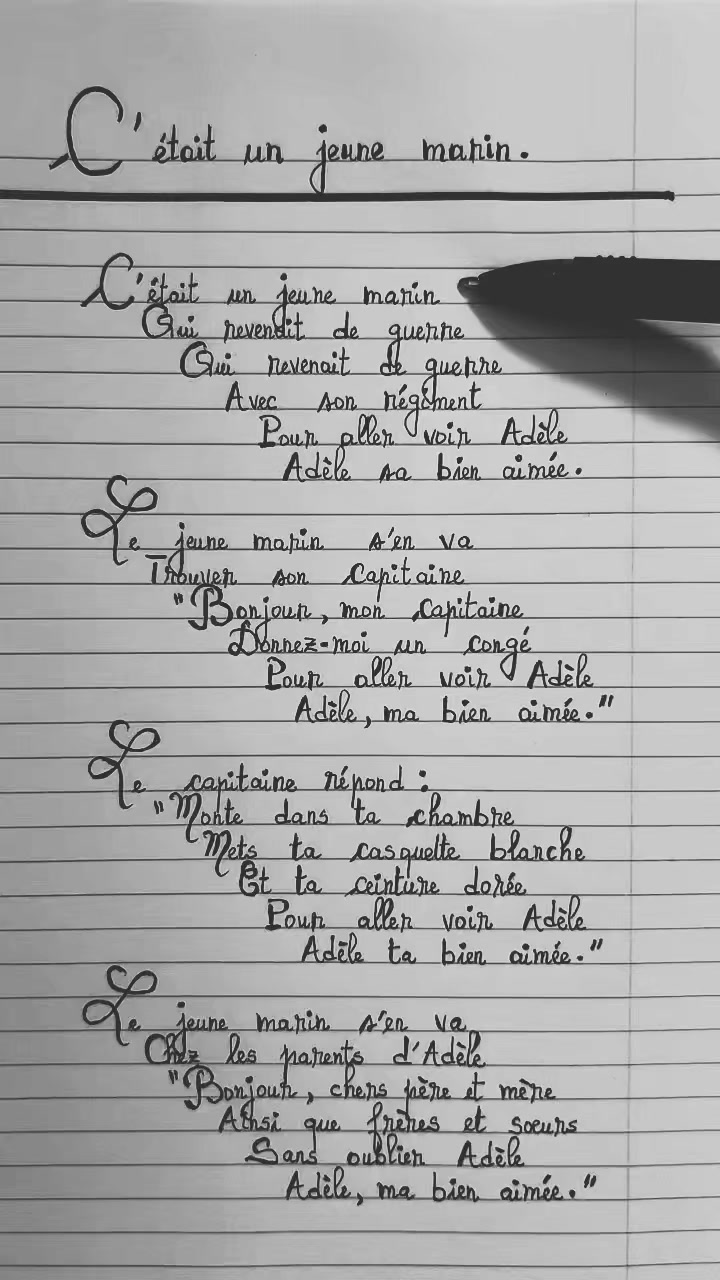 C'était un jeune marin.
C'était un jeune marin
Qui revendit de guerre
Qui revenait de guerre
Avec son régiment
Pour aller voir Adèle
Adèle sa bien aimée.
Le jeune marin s'en va
Trouver son capitaine
"Bonjour, mon capitaine
Donnez-moi un congé
Pour aller voir Adèle
Adèle, ma bien aimée."
Le capitaine répond :
"Monte dans ta chambre
Mets ta casquette blanche
Et ta ceinture dorée
Pour aller voir Adèle
Adèle ta bien aimée."
Le jeune marin s'en va
Chez les parents d'Adèle
"Bonjour, chers père et mère
Ainsi que frères et soeurs
Sans oublier Adèle
Adèle, ma bien aimée."